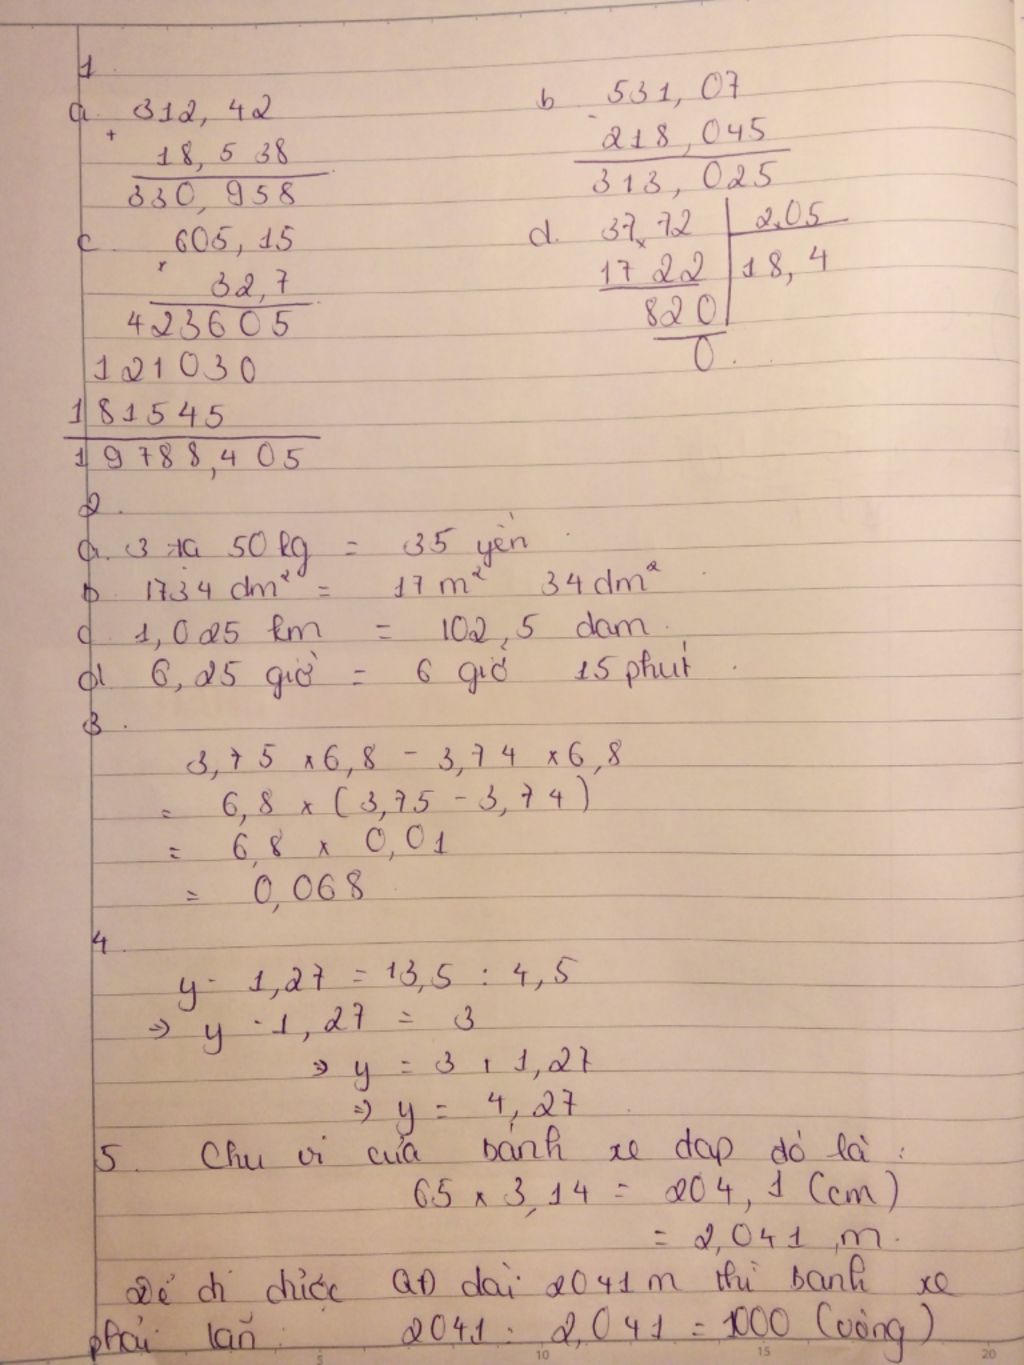 1.
a. 312,42
+
18,538
330,958
b 531,07
-
218,045
313,025
c. 605,15
x
32,7
423605
121030
181545
19788,405
d. 37,72 2,05
1722 18,4
820
0.
2.
a. 3 tạ 50 kg = 35 yến
b 1734 dm² = 17 m² 34 dm²
c. 1,025 km = 102,5 dam.
d 6,25 giờ = 6 giờ 15 phút.
3.
3,75 x 6,8 - 3,74 x 6,8
= 6,8 x (3,75 - 3,74)
= 6,8 x 0,01
= 0,068
4.
y - 1,27 = 13,5 : 4,5
=> y - 1,27 = 3
=> y = 3 + 1,27
=> y = 4,27
5. Chu vi của bánh xe đạp đó là :
65 x 3,14 = 204,1 (cm)
= 2,041 m.
Để đi chiếc QĐ dài 2041 m thì bánh xe
phải lăn: 2041 : 2,041 = 1000 (vòng)
5 10 15 20